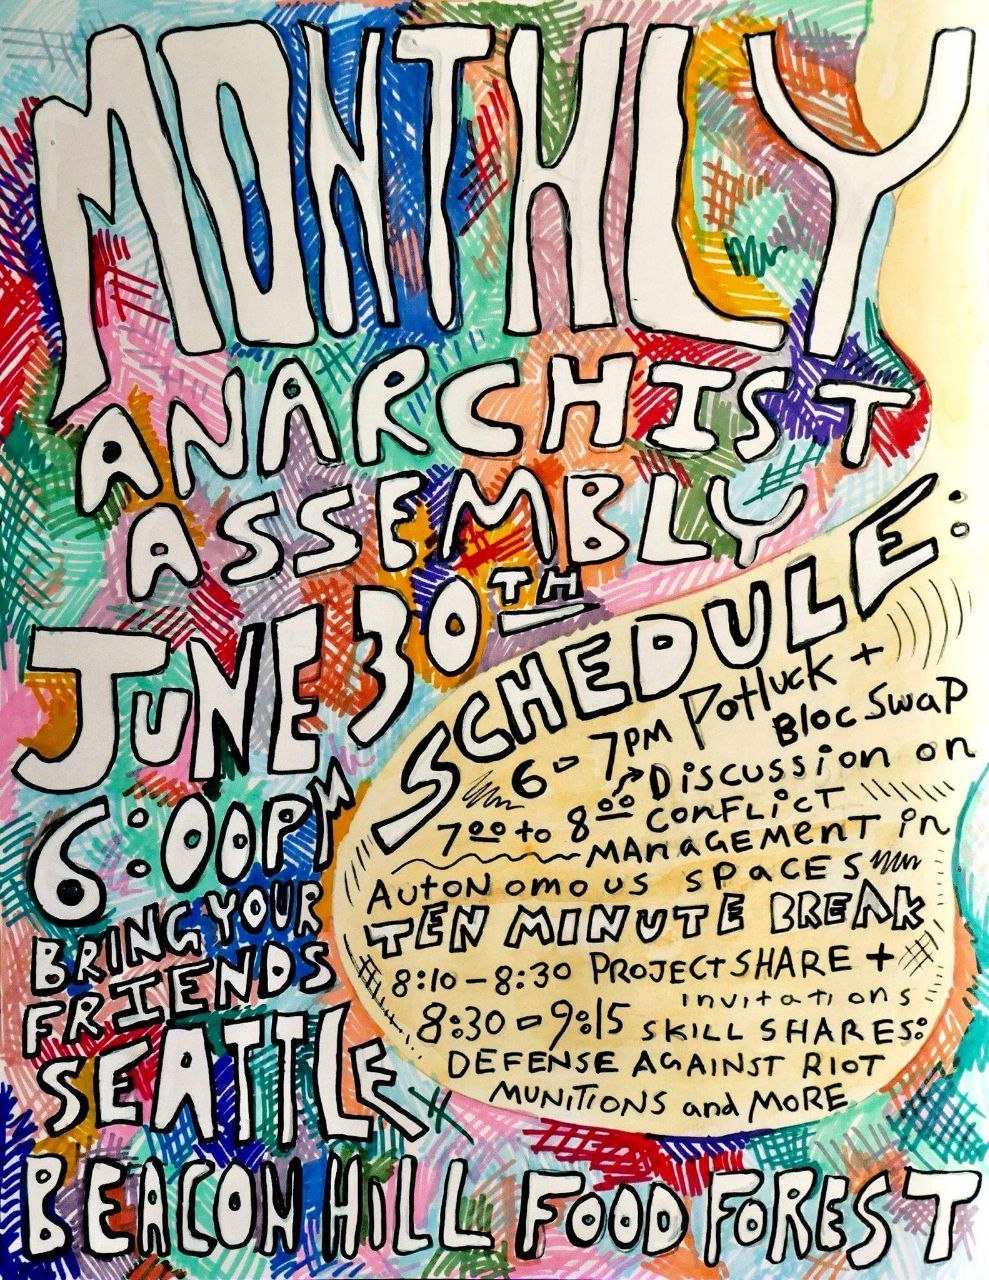 MONTHLY
ANARCHIST
ASSEMBLY
JUNE 30TH
6:00PM
BRING YOUR
FRIENDS
SEATTLE
BEACON HILL FOOD FOREST
SCHEDULE:
6-7PM Potluck +
Bloc Swap
700 to 800 Discussion on
CONFLICT
MANAGEMENT in
AUTONOMOUS SPACES
TEN MINUTE BREAK
8:10-8:30 PROJECT SHARE +
invitations
8:30-9:15 SKILL SHARES:
DEFENSE AGAINST RIOT
MUNITIONS and MORE